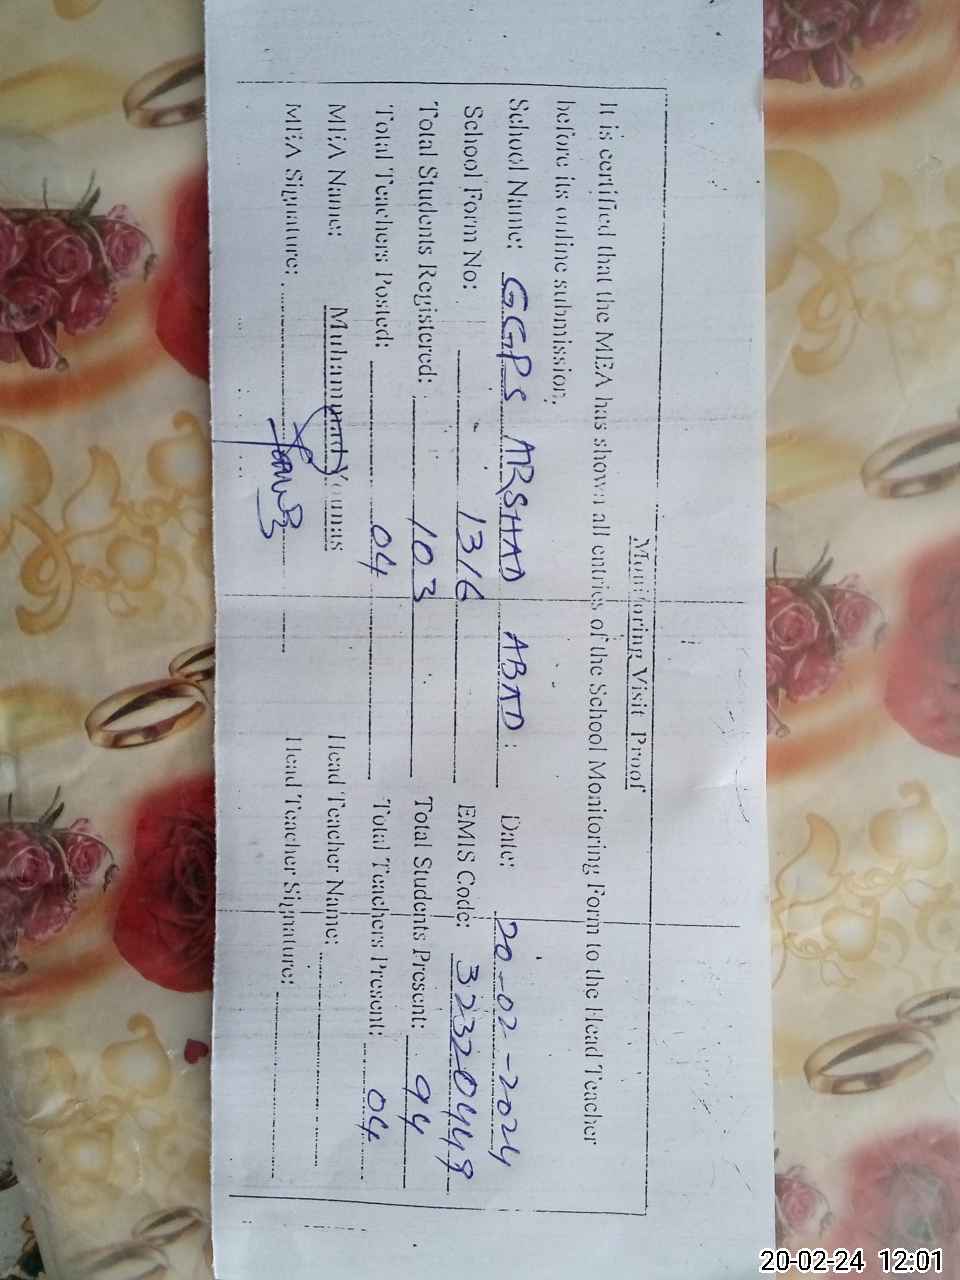 Monitoring Visit Proof
It is certified that the MEA has shown all entries of the School Monitoring Form to the Head Teacher
before its online submission.
School Name: GGPS ARSHAD ABAD : Date: 20-02-2024
School Form No: 1316 EMIS Code: 32320449
Total Students Registered: 103 Total Students Present: 94
Total Teachers Posted: 04 Total Teachers Present: 04
MEA Name: Muhammad Younas Head Teacher Name:
MEA Signature: Head Teacher Signature:
20-02-24 12:01